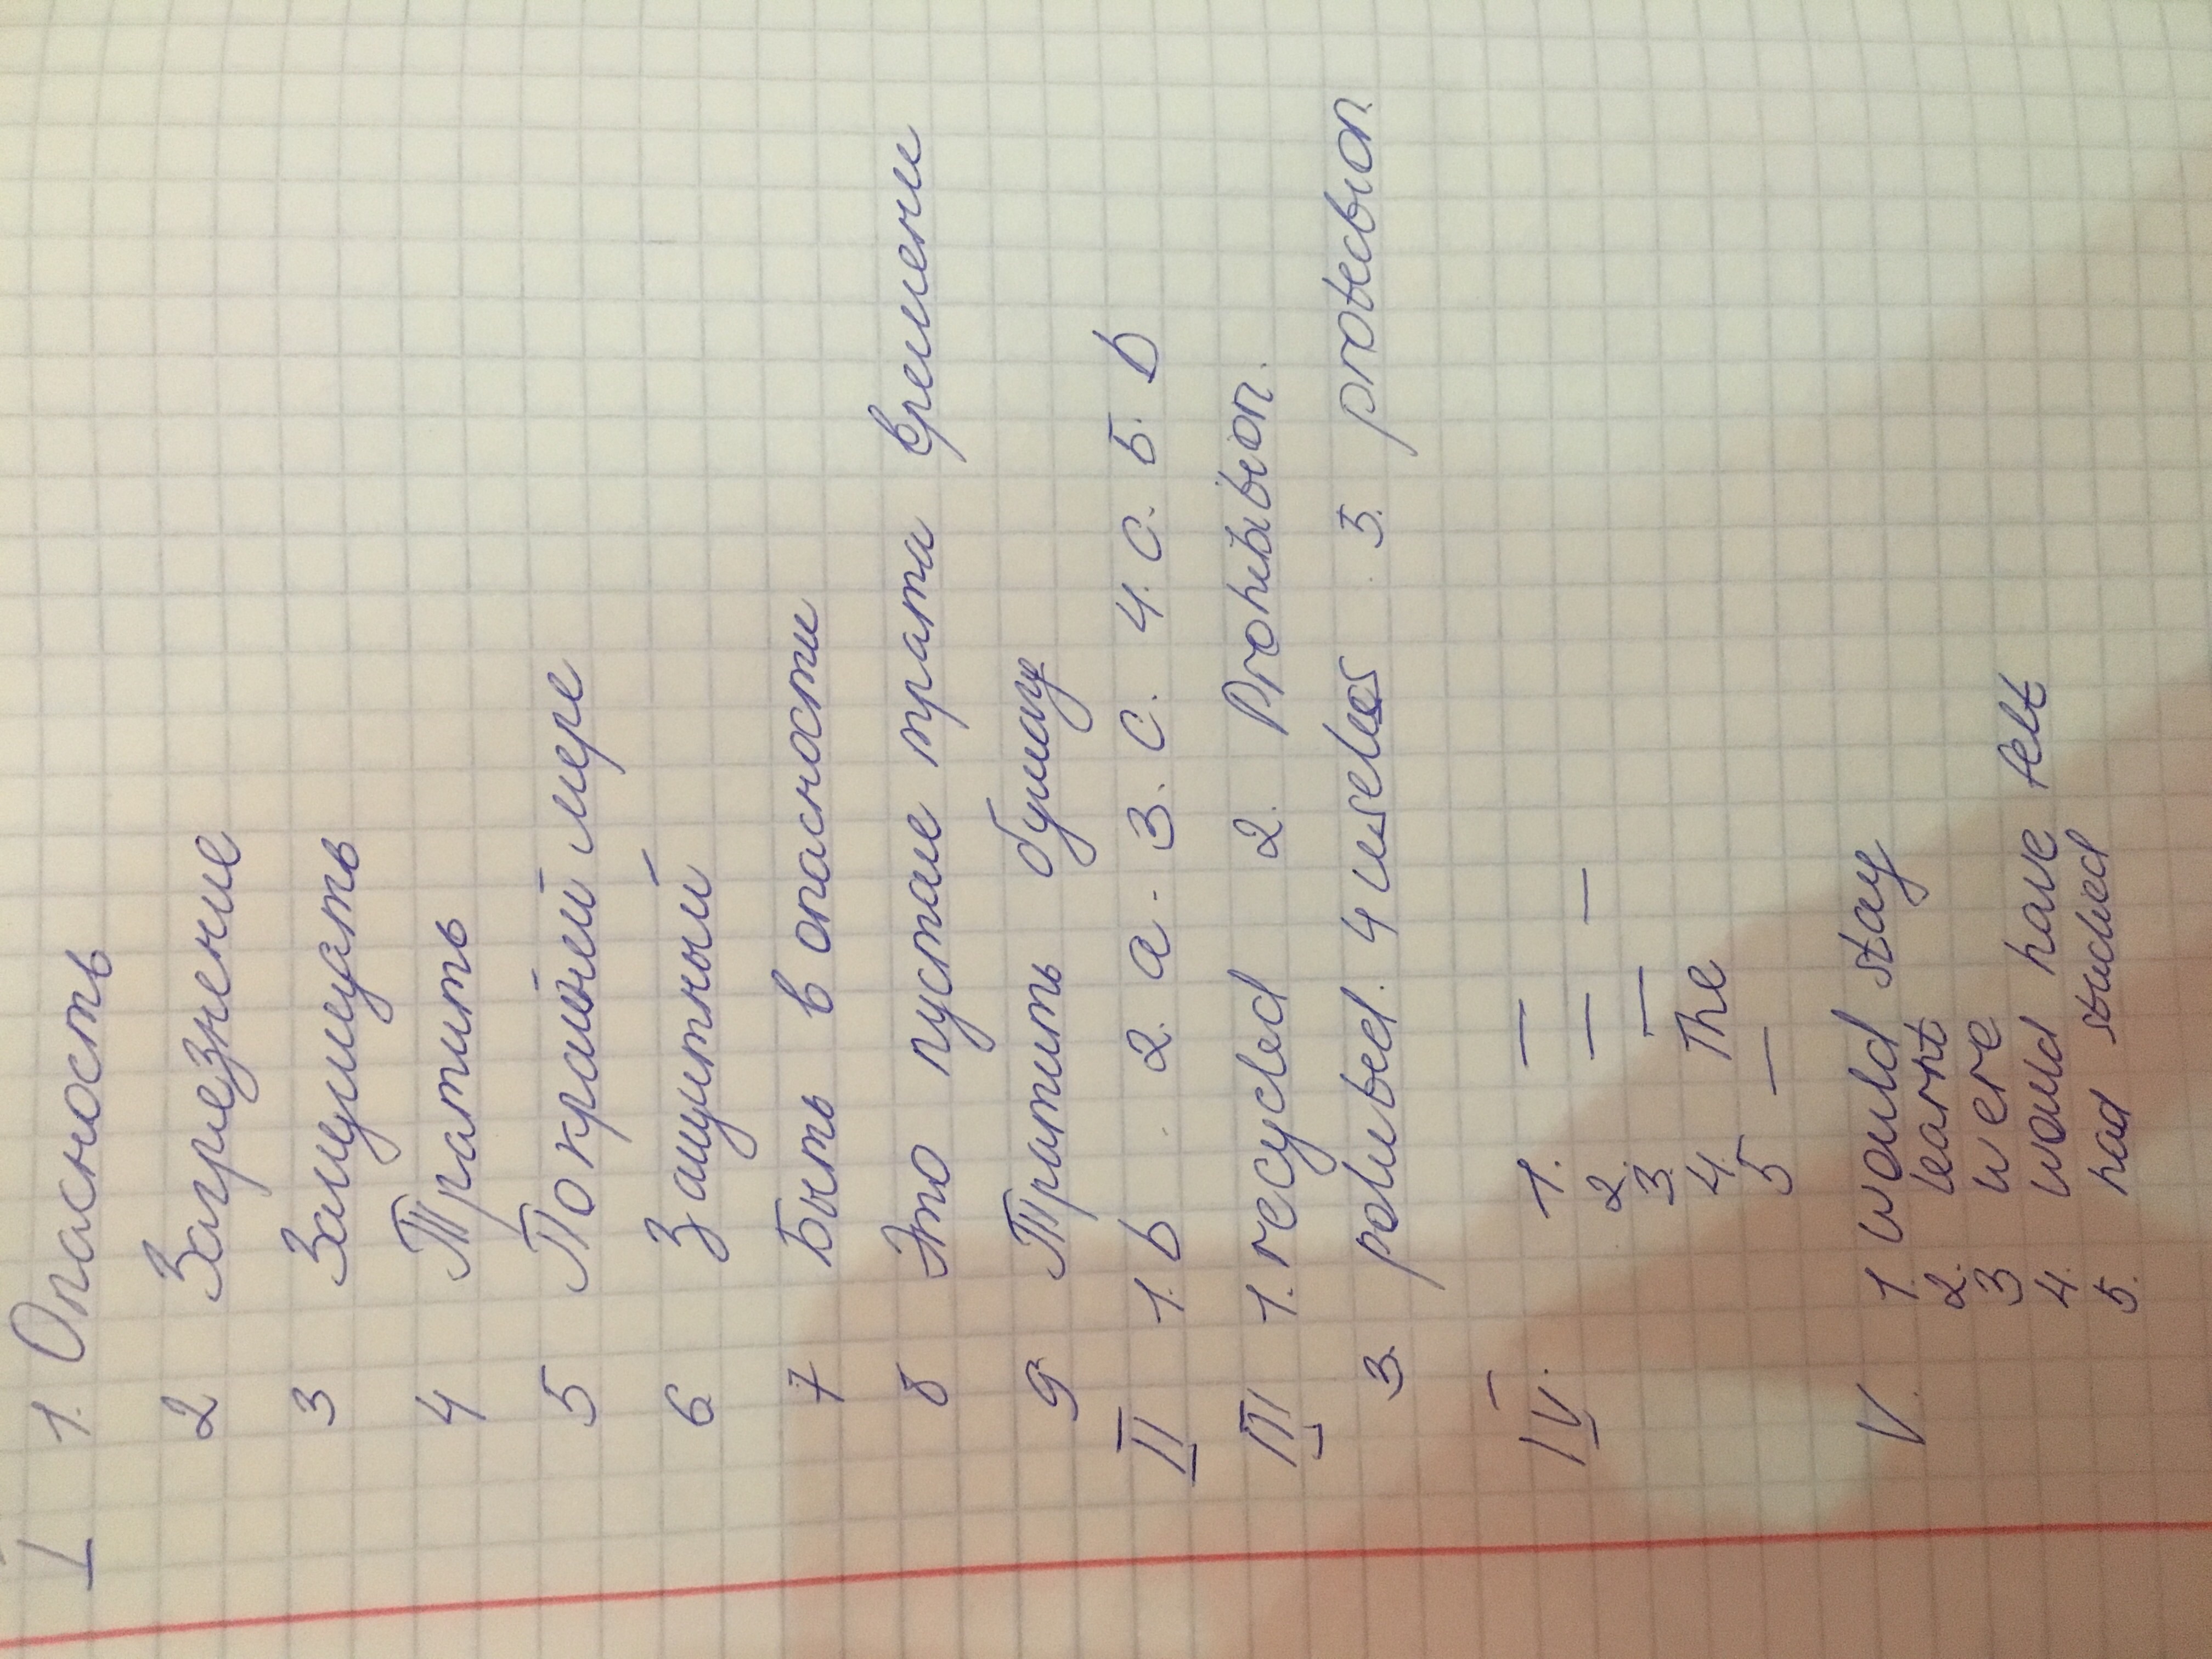 I 1. Опасность
2 Загрезнение
3 Защищать
4 Тратить
5 По крайней мере
6 Защитный
7 Быть в опасности
8 Это пустая трата времени
9 Тратить бумагу
II 1. b 2. a. 3. c. 4. c. 5. b
III 1. recycled 2. Prohibition.
3. poluted. 4 useles 5. protection
IV. 1. —
2. — —
3. —
4. The
5 —
V. 1. would stay
2. learnt
3 were
4. would have felt
5. had studied